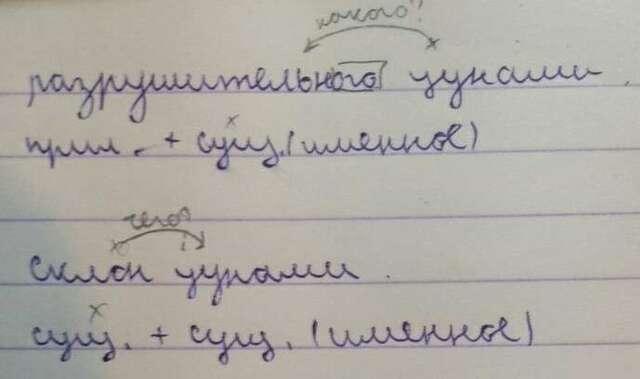 какого?
разрушительного цунами.
прил. + сущ. (именное)
чего?
склон цунами.
сущ. + сущ. (именное)